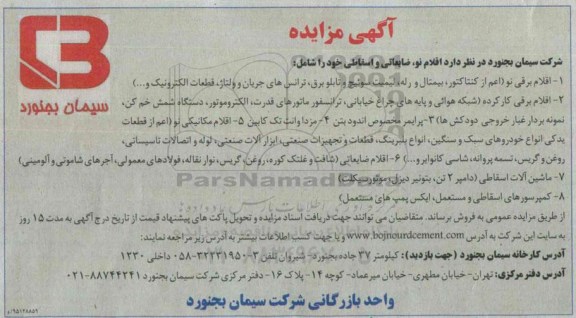 آگهی مزایده
سیمان بجنورد
شرکت سیمان بجنورد در نظر دارد اقلام نو، ضایعاتی و اسقاطی خود را شامل:
۱- اقلام برقی نو (اعم از کنتاکتور، بیمتال و رله، لیمیت سوئیچ و تابلو برق، ترانس های جریان و ولتاژ، قطعات الکترونیک و...)
۲- اقلام برقی کارکرده (شبکه هوائی و پایه های چراغ خیابانی، ترانسفور ماتورهای قدرت، الکتروموتور، دستگاه شمش خم کن،
نمونه بردار غبار خروجی دودکش ها) ۳- پرایمر مخصوص اندود بتن ۴- مزدا وانت تک کابین ۵- اقلام مکانیکی نو (اعم از قطعات
یدکی انواع خودروهای سبک و سنگین، انواع بلبرینگ، قطعات و تجهیزات صنعتی، ابزار آلات صنعتی، لوله و اتصالات تاسیساتی،
روغن و گریس، تسمه پروانه، شاسی کانوایر و...) ۶- اقلام ضایعاتی (شافت و غلتک کوره، روغن، گریس، نوار نقاله، فولادهای معمولی، آجرهای شاموتی و آلومینی)
۷- ماشین آلات اسقاطی (دامپر ۲ تن، بتونیر دیزل، موتورسیکلت)
۸- کمپرسورهای اسقاطی و مستعمل، ایکس پمپ های مستعمل)
از طریق مزایده عمومی به فروش برساند. متقاضیان می توانند جهت دریافت اسناد مزایده و تحویل پاکت های پیشنهاد قیمت از تاریخ درج آگهی به مدت ۱۵ روز
به سایت این شرکت به آدرس www.bojnourdcement.com و یا جهت کسب اطلاعات بیشتر به آدرس زیر مراجعه نمایند:
آدرس کارخانه سیمان بجنورد (جهت بازدید): کیلومتر ۳۷ جاده بجنورد- شیروان تلفن ۳-۳۲۲۳۱۹۵۰-۰۵۸ داخلی ۱۲۳۰
آدرس دفتر مرکزی: تهران- خیابان مطهری- خیابان میرعماد- کوچه ۱۴- پلاک ۱۶- دفتر مرکزی شرکت سیمان بجنورد ۸۸۷۴۴۲۴۱-۰۲۱
واحد بازرگانی شرکت سیمان بجنورد
ParsNamadData